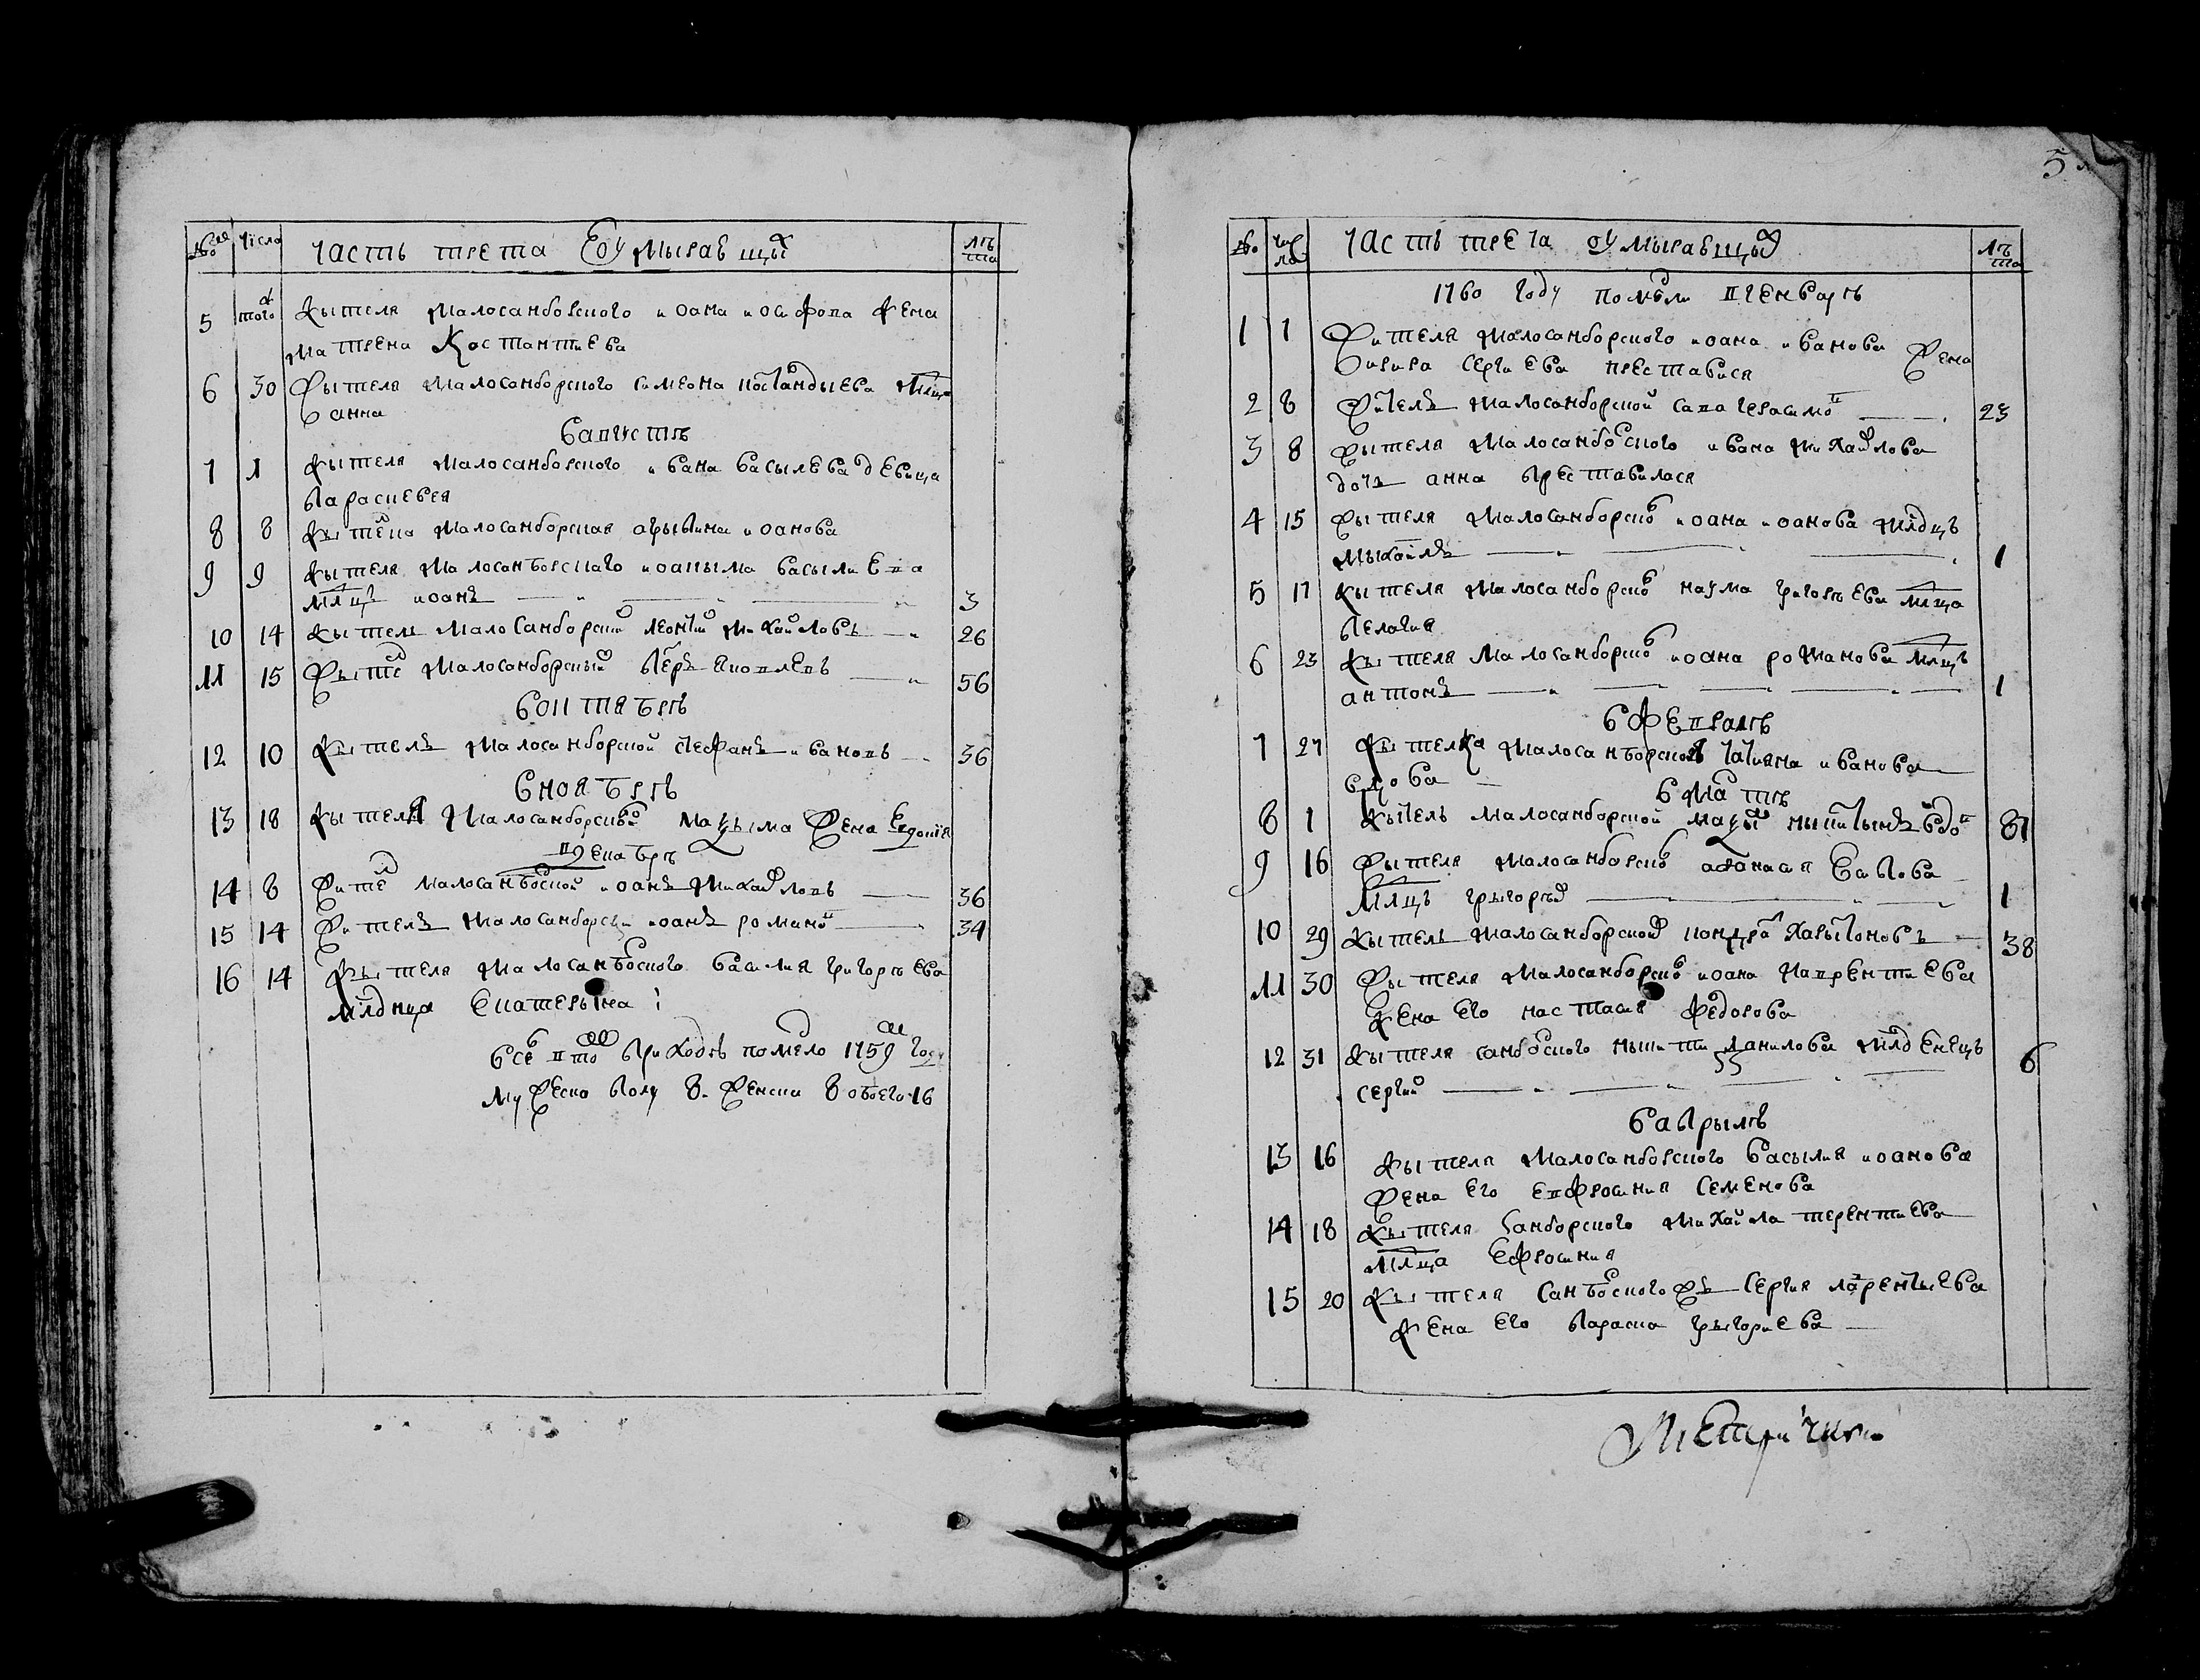 № Число часть трета Ѡ умыравщых лѣта
5 того жытеля малосамборского иоана иосифова жена
матрена Костантиева
6 30 жытеля малосамборского симеона млца
анна
в августѣ
7 1 жытеля малосамборского ивана васылева девица
параскевея
8 8 малосамборская иоанова
9 9 жытеля малосамборскаго васыли
млцъ иоанъ 3
10 14 жытель малосамборский леонтий михайловъ 26
11 15 жытел малосамборский 56
в октябрѣ
12 10 жытель малосамборской стефанъ ивановъ 36
в ноябрѣ
13 18 жытеля малосамборсково жена
в декабрѣ
14 8 жител малосамборской иоанъ михайловъ 36
15 14 житель малосамборски иоанъ романов 34
16 14 жытеля малосамборского василия григорѣева
млднца екатерына
всев того приходѣ помело 1759 году
мужеска полу 8 женска 8 обоего 16
5
№ число часть трета умыравщых лѣта
1760 году померли в генварѣ
1 1 жителя малосамборского иоана иванова жена
сергиева преставися
2 8 жытель малосамборской сава герасимов 23
3 8 жытеля малосамборского ивана михайлова
дочъ анна преставилася
4 15 жытеля малосамборско иоана иоанова млдцъ
мыхайлъ 1
5 17 жытеля малосамборско наума григорѣева млца
пелагия
6 23 жытеля малосамборско иоана романова млцъ
антонъ 1
в февралѣ
7 27 жытелка малосамборская татияна иванова
вдова
в мартѣ
8 1 жытель малосамборской 81
9 16 жытеля малосамборско афанасия
млцъ грыгорѣй 1
10 29 жытель малосамборской кондра харытоновъ 38
11 30 жытеля малосамборско иоана лаврентиева
жена его настасия федорова
12 31 жытеля самборского мыкити данилова млденецъ
сергий 6
в апрылѣ
13 16 жытеля малосамборского васылия иоанова
жена его евфросиния семенова
14 18 жытеля самборского михайла терентиева
млца ефросиния
15 20 жытеля самборского сергия ларентыева
жена его параска грыгориева